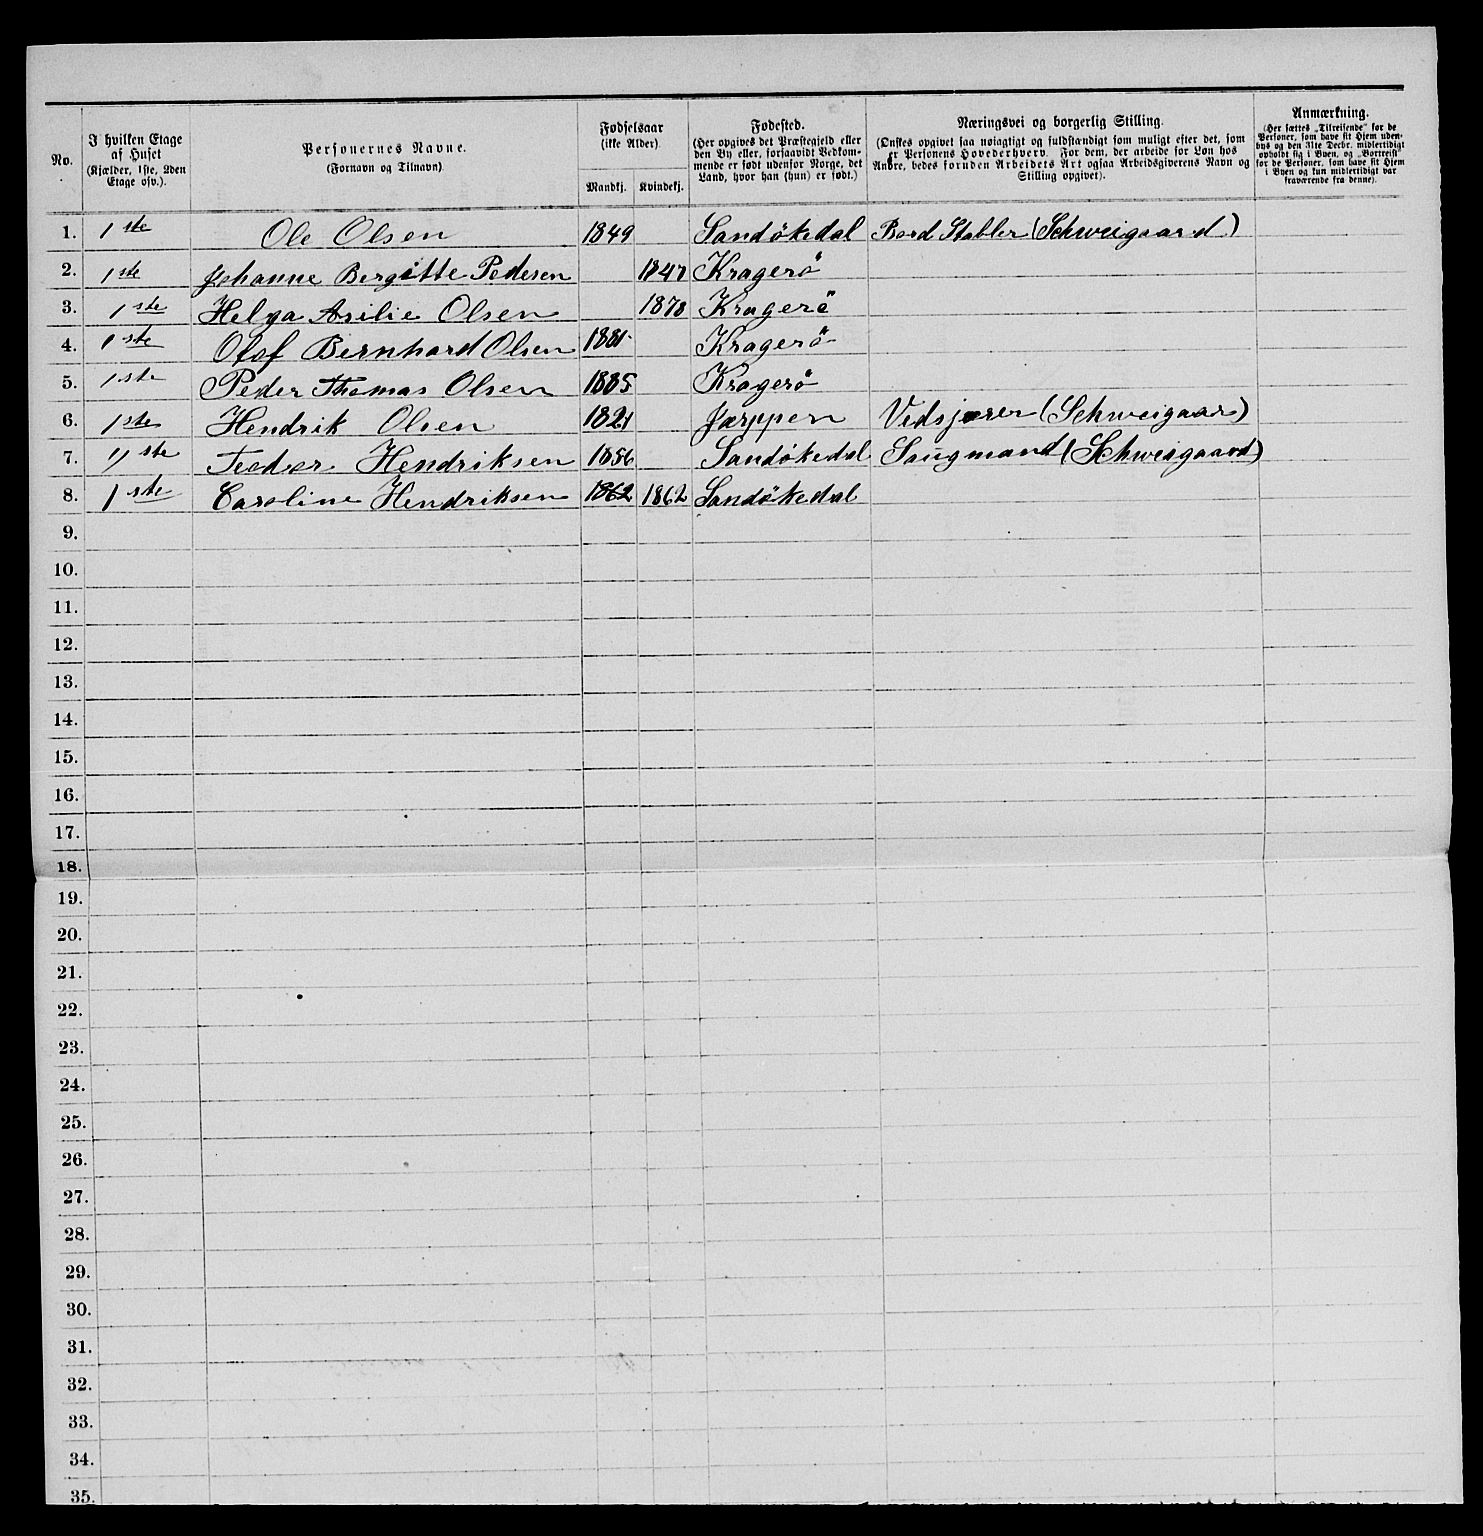 No.
I hvilken Etage
af Huset
(Kjælder, 1ste, 2den
Etage osv.).
Personernes Navne.
(Fornavn og Tilnavn)
Fødselsaar
(ikke Alder).
Mandkj. Kvindekj.
Fødested.
(Her opgives det Præstegjeld eller
den By eller, forsaavidt Vedkom-
mende er født udenfor Norge, det
Land, hvor han (hun) er født.)
Næringsvei og borgerlig Stilling.
(Ønskes opgivet saa nøiagtigt og fuldstændigt som muligt efter det, som
er Personens Hovederhverv. For dem, der arbeide for Løn hos
Andre, bedes foruden Arbeidets Art ogsaa Arbeidsgiverens Navn og
Stilling opgivet).
Anmærkning.
(Her sættes „Tilreisende“ for de
Personer, som have sit Hjem uden-
bys og den 31te Decbr. midlertidigt
opholdt sig i Byen, og „Bortreist“
for de Personer, som have sit Hjem
i Byen og kun midlertidigt var
fraværende fra denne).
1. 1ste Ole Olsen 1849 Sandökedal Bord Stabler (Schweigaard)
2. 1ste Johanne Bergitte Pedersen 1847 Kragerö
3. 1ste Helga Asilie Olsen 1878 Kragerö
4. 1ste Olof Bernhard Olsen 1881 Kragerö
5. 1ste Peder Thomas Olsen 1885 Kragerö
6. 1ste Hendrik Olsen 1821 Jærppen Vedsjærer (Schweigaar)
7. 1ste Teodor Hendriksen 1856 Sandökedal Saugmand (Schweigaard)
8. 1ste Caroline Hendriksen 1862 1862 Sandökedal
9.
10.
11.
12.
13.
14.
15.
16.
17.
18.
19.
20.
21.
22.
23.
24.
25.
26.
27.
28.
29.
30.
31.
32.
33.
34.
35.